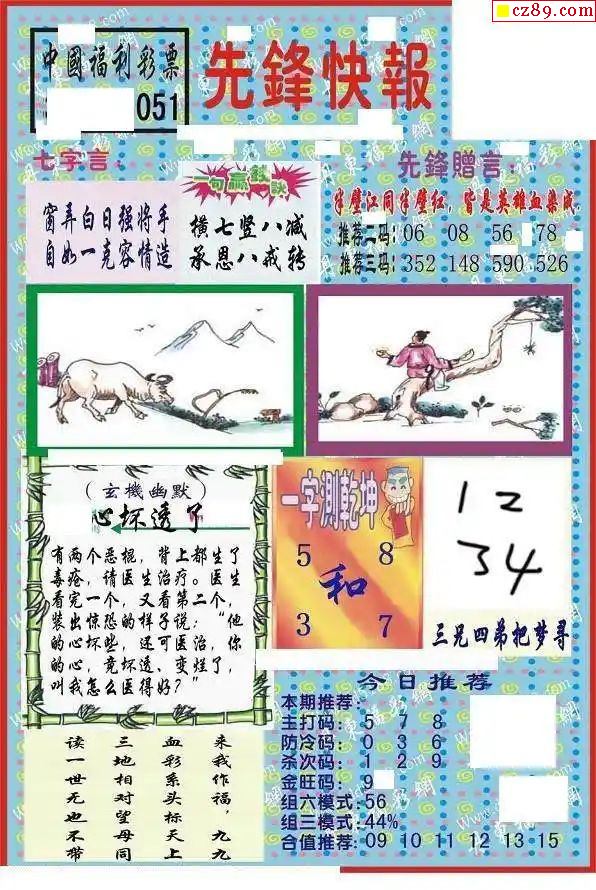 cz89.com
中國福利彩票
051
先鋒快報
七字言：
窗弄白日强將手
自如一克容情造
一句贏錢訣
横七竖八减
承恩八戒转
先鋒贈言：
半壁江同半壁红，皆是英雄血染成。
推荐二码：06 08 56 78
推荐三码：352 148 590 526
（玄機幽默）
心坏透了
有两个恶棍，背上都生了
毒疮，请医生治疗。医生
看完一个，又看第二个，
装出惊恐的样子说："他
的心坏些，还可医治，你
的心，竟坏透、变烂了，
叫我怎么医得好？"
一字測乾坤
5 8
和
3 7
12
34
三兄四弟把梦寻
今日推荐
本期推荐：
主打码：5 7 8
防冷码：0 3 6
杀次码：1 2 9
金旺码：9
组六模式：56
组三模式：44%
合值推荐：09 10 11 12 13 15
来我作福，九九
血彩系头标天上
三地相对望母同
读一世无也不带